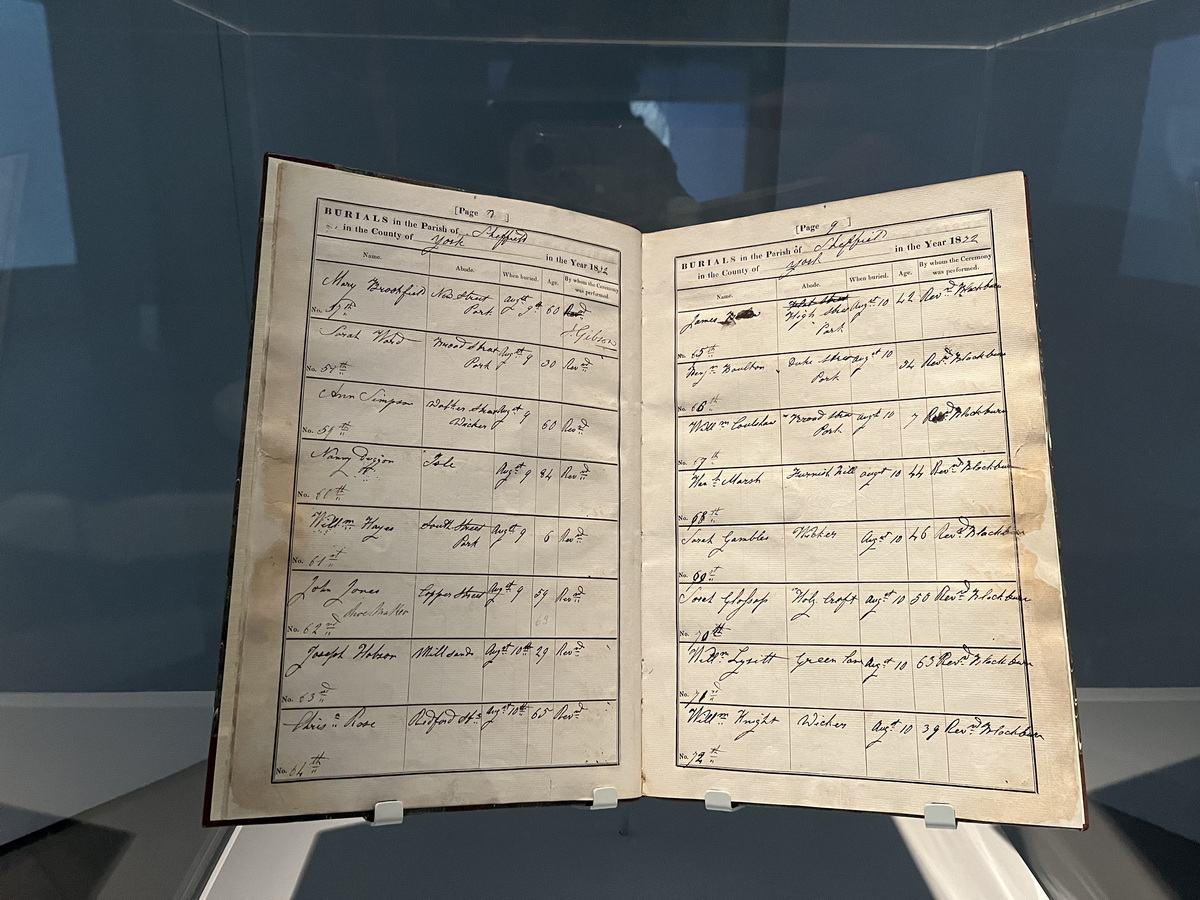 [Page 7 ]
BURIALS in the Parish of Sheffield
in the County of York in the Year 1832
Name. Abode. When buried. Age. By whom the Ceremony was performed.
Mary Brookfield New Street Augst 9th 60 Revd
Park J. Gibson
No. 57th
Sarah Ward Broad Street Augst 9 30 Revd
Park
No. 58th
Ann Simpson Street Augst 9 60 Revd
Wicker
No. 59th
Nancy Isle Augst 9 84 Revd
No. 60th
Willm Hayes South Street Augst 9 6 Revd
Park
No. 61st
John Jones Copper Street Augst 9 59 Revd
63
No. 62nd
Joseph Hobson Millsands Augst 10th 29 Revd
No. 63rd
Rose Augst 10th 65 Revd
No. 64th
[Page 9 ]
BURIALS in the Parish of Sheffield
in the County of York in the Year 1832
Name. Abode. When buried. Age. By whom the Ceremony
was performed.
James High Street Augst 10 42 Revd Blackburn
Park
No. 65th
Benjn Boulton Duke Street Augst 10 34 Revd Blackburn
Park
No. 66th
Willm Broad Street Augst 10 7 Revd Blackburn
Park
No. 67th
Marsh Furnish Hill Augst 10 44 Revd Blackburn
No. 68th
Sarah Gambles Wicker Augst 10 46 Revd Blackburn
No. 69th
Sarah Glossop Holy Croft Augst 10 50 Revd Blackburn
No. 70th
Willm Lysitt Green Lane Augst 10 63 Revd Blackburn
No. 71st
Willm Knight Wicker Augst 10 39 Revd Blackburn
No. 72th